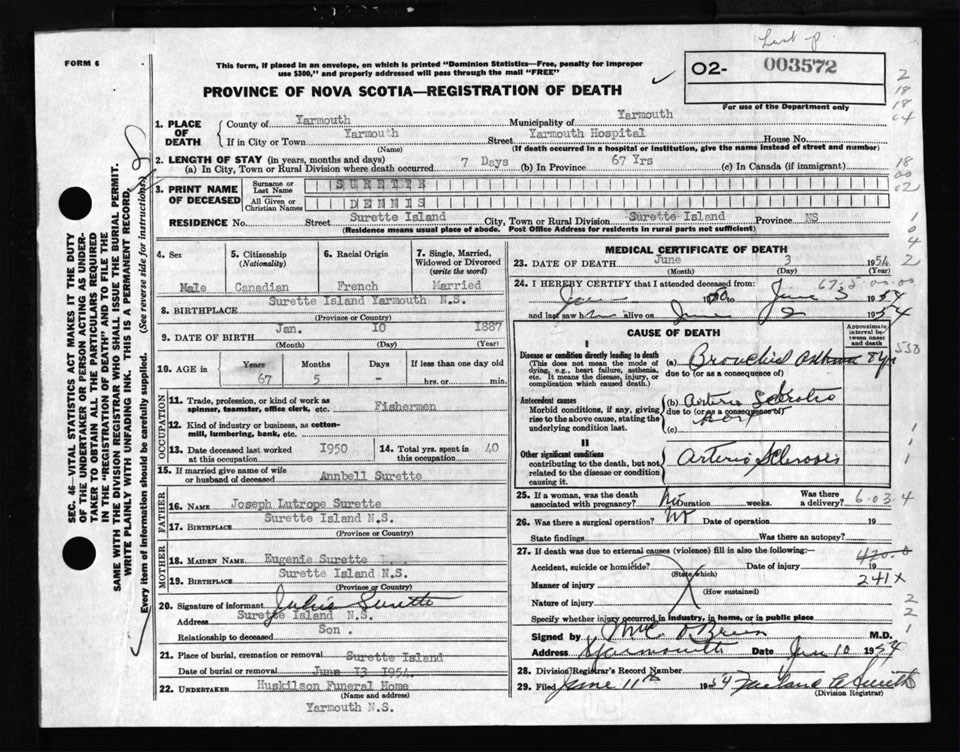 FORM 6
This form, if placed in an envelope, on which is printed "Dominion Statistics—Free, penalty for improper
use $300," and properly addressed will pass through the mail "FREE"
PROVINCE OF NOVA SCOTIA—REGISTRATION OF DEATH
O2- 003572
For use of the Department only
1. PLACE OF DEATH
County of Yarmouth Municipality of Yarmouth
If in City or Town Yarmouth Street Yarmouth Hospital House No.
(Name) (If death occurred in a hospital or institution, give the name instead of street and number)
2. LENGTH OF STAY (in years, months and days)
(a) In City, Town or Rural Division where death occurred 7 Days (b) In Province 67 Yrs (c) In Canada (if immigrant)
3. PRINT NAME OF DECEASED
Surname or Last Name SURETTE
All Given or Christian Names DENNIS
RESIDENCE No. Street Surette Island City, Town or Rural Division Surette Island Province NS
(Residence means usual place of abode. Post Office Address for residents in rural parts not sufficient)
4. Sex Male
5. Citizenship (Nationality) Canadian
6. Racial Origin French
7. Single, Married, Widowed or Divorced (write the word) Married
8. BIRTHPLACE Surette Island Yarmouth N.S.
(Province or Country)
9. DATE OF BIRTH Jan. 10 1887
(Month) (Day) (Year)
10. AGE in Years Months Days If less than one day
67 5 - hrs. or min.
OCCUPATION
11. Trade, profession, or kind of work as
spinner, teamster, office clerk, etc. Fishermen
12. Kind of industry or business, as cotton-
mill, lumbering, bank, etc.
13. Date deceased last worked
at this occupation 1950
14. Total yrs. spent in
this occupation 40
15. If married give name of wife
or husband of deceased Annbell Surette
FATHER
16. NAME Joseph Lutrope Surette
17. BIRTHPLACE Surette Island N.S.
(Province or Country)
MOTHER
18. MAIDEN NAME Eugenie Surette
19. BIRTHPLACE Surette Island N.S.
(Province or Country)
20. Signature of informant Julis Surette
Address Surette Island N.S.
Relationship to deceased Son .
21. Place of burial, cremation or removal Surette Island
Date of burial or removal June 13 1954
22. UNDERTAKER Huskilson Funeral Home
(Name and address)
Yarmouth N.S.
MEDICAL CERTIFICATE OF DEATH
23. DATE OF DEATH June 3 1954
(Month) (Day) (Year)
24. I HEREBY CERTIFY that I attended deceased from:
Jan 1950 to June 3 1954
and last saw him alive on June 2 1954
CAUSE OF DEATH
Approximate interval between onset and death
I
Disease or condition directly leading to death
(This does not mean the mode of
dying, e.g., heart failure, asthenia,
etc. It means the disease, injury, or
complication which caused death.)
(a) Bronchial Asthma 8 yrs
due to (or as a consequence of)
Antecedent causes
Morbid conditions, if any, giving
rise to the above cause, stating the
underlying condition last.
(b) Arterio Sclerotic
due to (or as a consequence of)
Heart
(c)
II
Other significant conditions
contributing to the death, but not
related to the disease or condition
causing it.
Arterio Sclerosis
25. If a woman, was the death
associated with pregnancy? No Duration weeks. Was there a delivery?
26. Was there a surgical operation? No Date of operation 19
State findings Was there an autopsy?
27. If death was due to external causes (violence) fill in also the following:—
Accident, suicide or homicide? Date of injury 19
(State which)
Manner of injury
(How sustained)
Nature of injury
Specify whether injury occurred in industry, in home, or in public place
Signed by O'Brien M.D.
Address Yarmouth Date Jun 10 1954
28. Division Registrar's Record Number
29. Filed June 11th 1954
(Division Registrar)
538
6.03.4
420.0
241x
SEC. 46—VITAL STATISTICS ACT MAKES IT THE DUTY
OF THE UNDERTAKER OR PERSON ACTING AS UNDER-
TAKER TO OBTAIN ALL THE PARTICULARS REQUIRED
IN THE "REGISTRATION OF DEATH" AND TO FILE THE
SAME WITH THE DIVISION REGISTRAR WHO SHALL ISSUE THE BURIAL PERMIT.
WRITE PLAINLY WITH UNFADING INK. THIS IS A PERMANENT RECORD.
Every item of information should be carefully supplied. (See reverse side for instructions)